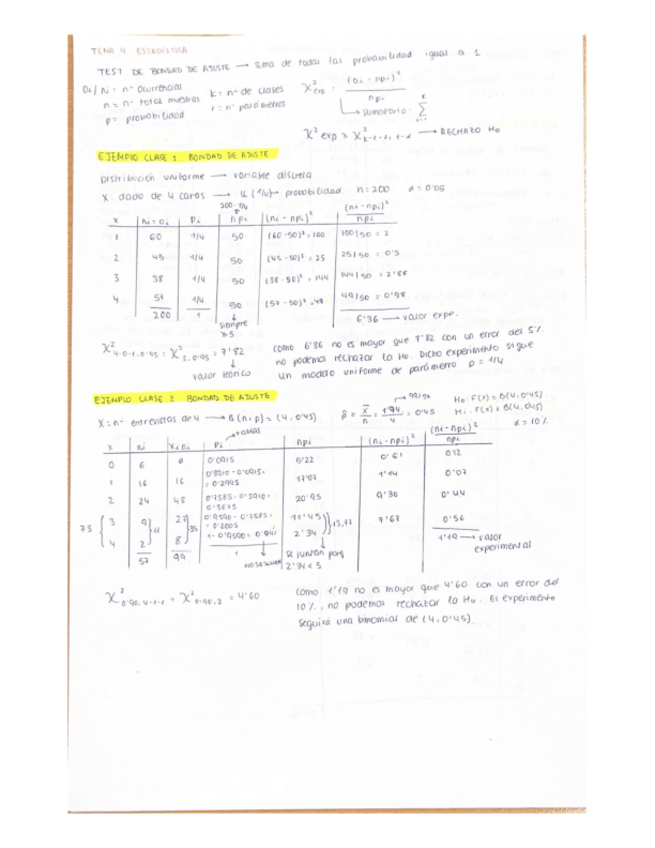 TEMA 4 ESTADÍSTICA
TEST DE BONDAD DE AJUSTE → Suma de todas las probabilidad igual a 1
Oi / ni = nº ocurrencias
n = nº total muestras
p = probabilidad
k = nº de clases
r = nº parámetros
χ² exp = (Oi - npi)² / npi
sumatorio Σ
χ² exp > χ² k-r-1, 1-α → RECHAZO Ho
EJEMPLO CLASE 1. BONDAD DE AJUSTE
Distribución uniforme → variable discreta
X: dado de 4 caras → U (1/4) → probabilidad n = 200 α = 0'05
200·1/4
x | ni = oi | Pi | npi | (ni - npi)² | (ni - npi)² / npi
1 | 60 | 1/4 | 50 | (60-50)² = 100 | 100/50 = 2
2 | 45 | 1/4 | 50 | (45-50)² = 25 | 25/50 = 0'5
3 | 38 | 1/4 | 50 | (38-50)² = 144 | 144/50 = 2'88
4 | 57 | 1/4 | 50 | (57-50)² = 49 | 49/50 = 0'98
200 | 1 | siempre ≥5 | 6'36 → valor expe.
χ² 4-0-1, 0'95 = χ² 3, 0'95 = 7'82
valor teórico
como 6'36 no es mayor que 7'82 con un error del 5%
no podemos rechazar la Ho. Dicho experimento sigue
un modelo uniforme de parámetro p = 1/4
EJEMPLO CLASE 2. BONDAD DE AJUSTE
X = nº entrevistas de 4 → B(n,p) = (4, 0'45)
99/57
p̂ = x̄/n = 1'74/4 = 0'45
Ho: F(x) = B(4, 0'45)
H1: F(x) ≠ B(4, 0'45)
α = 10%
→ tablas
x | ni | xi ni | Pi | npi | (ni - npi)² | (ni - npi)² / npi
0 | 6 | 0 | 0'0915 | 5'22 | 0'61 | 0'12
1 | 16 | 16 | 0'3910 - 0'0915 = 0'2995 | 17'07 | 1'14 | 0'07
2 | 24 | 48 | 0'7585 - 0'3910 = 0'3675 | 20'95 | 9'30 | 0'44
3 | 9 | 27 | 0'9590 - 0'7585 = 0'2005 | 11'45 | 7'67 | 0'56
4 | 2 | 8 | 1 - 0'9590 = 0'041 | 2'34
≥5 | 11 | 35 | 13,77
57 | 99 | 1 | 1'19 → valor experimental
NO SE SUMAN
se juntan porq
2'34 < 5
χ² 0'90, 4-1-1 = χ² 0'90, 2 = 4'60
como 1'19 no es mayor que 4'60 con un error del
10%, no podemos rechazar la Ho. El experimento
seguirá una binomial de (4, 0'45)